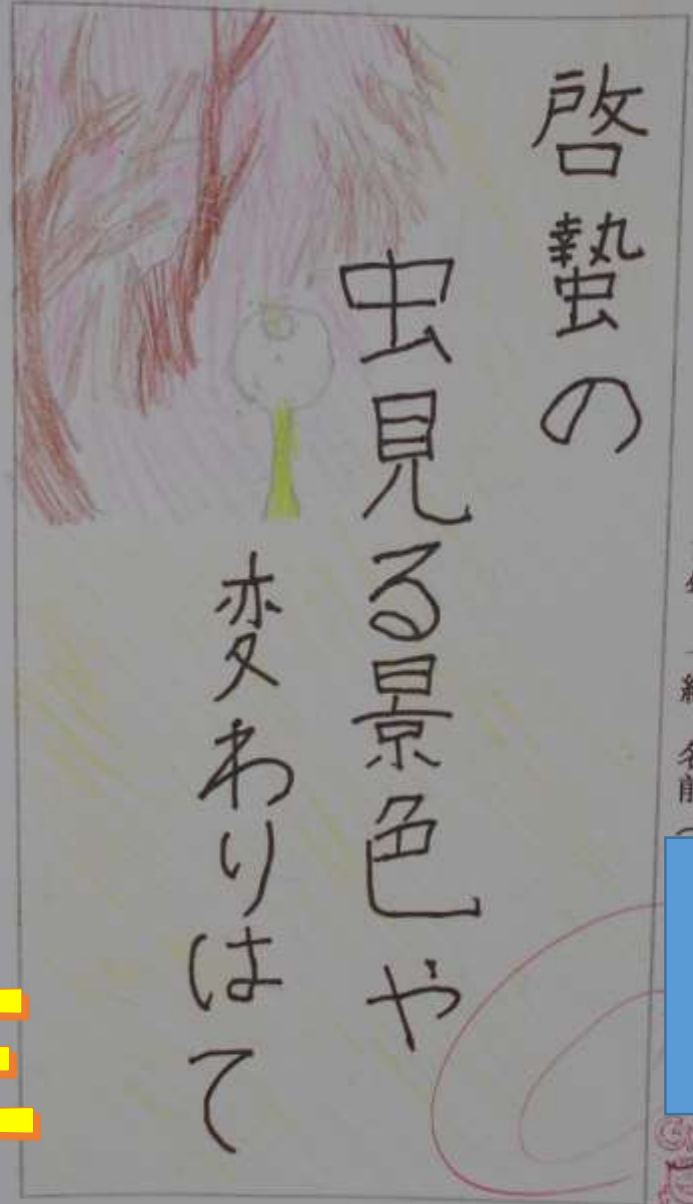 啓蟄の
虫見る景色や
変わりはて
名前